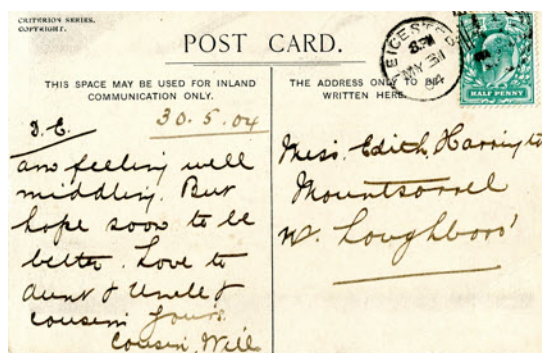 CRITERION SERIES.
COPYRIGHT.
POST CARD.
THIS SPACE MAY BE USED FOR INLAND
COMMUNICATION ONLY.
THE ADDRESS ONLY TO BE
WRITTEN HERE.
LEICESTER
MY 31
04
HALF PENNY
30.5.04
D. E.
am feeling well
middling. But
hope soon to be
better. Love to
Aunt & Uncle &
cousin Yours
Cousin Will
Miss. Edith Harrington
Mountsorrel
Nr. Loughboro'